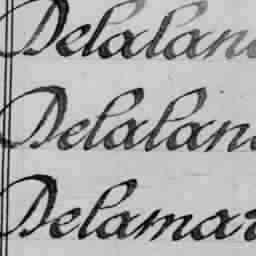 Delalan
Delalan
Delamar